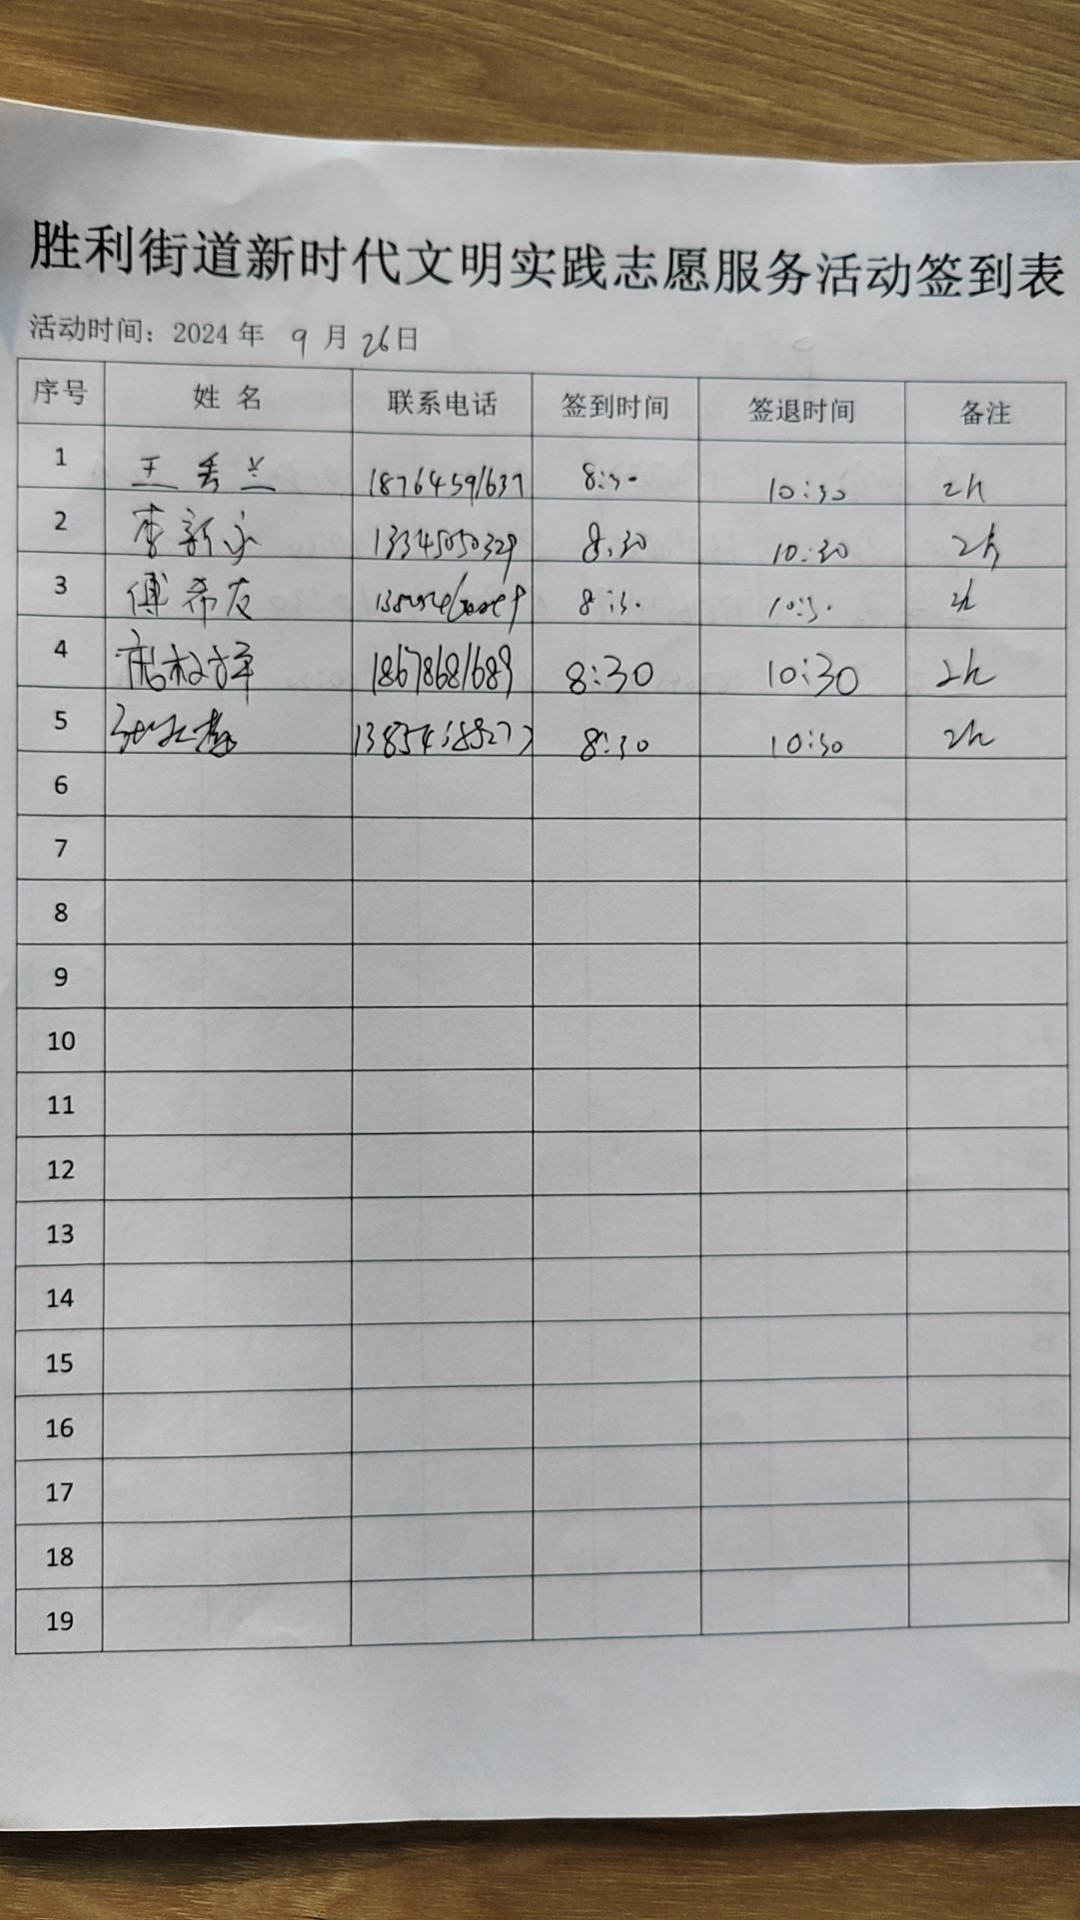 胜利街道新时代文明实践志愿服务活动签到表
活动时间：2024 年 9 月 26日
序号 姓 名 联系电话 签到时间 签退时间 备注
1 王秀兰 18764591637 8:30 10:30 2h
2 李新永 13345050329 8.30 10:30 2h
3 傅希友 8:30 10:30 2h
4 18678681689 8:30 10:30 2h
5 8:30 10:30 2h
6
7
8
9
10
11
12
13
14
15
16
17
18
19